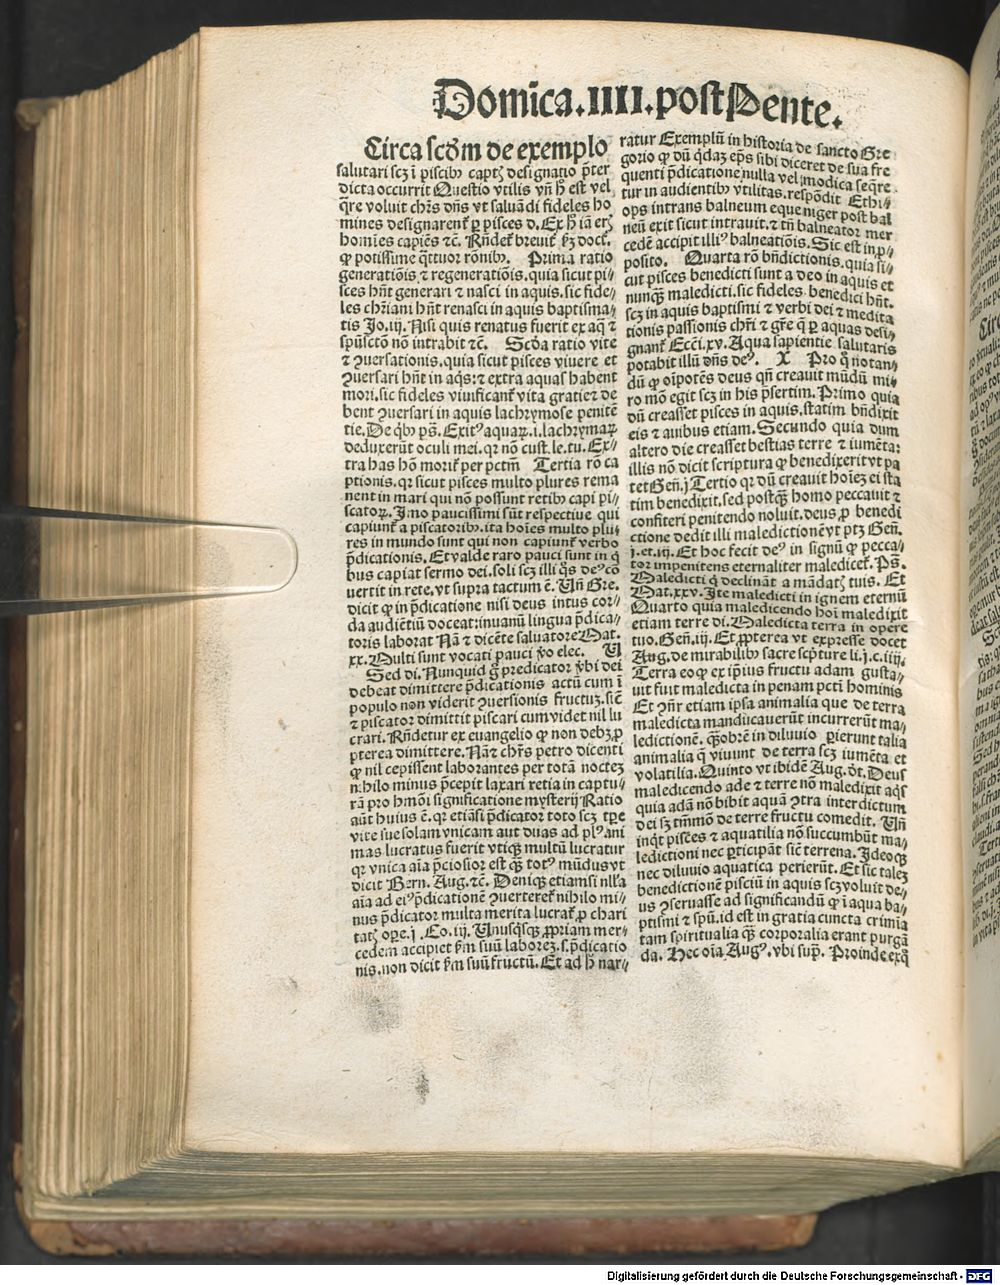 Domica.IIII.post Pente.
Circa scḋm de exemplo
salutari scꝫ ī piscibꝰ captꝭ designatio p̄ter
dicta occurrit Questio vtilis vñ ħ est vel
q̄re voluit chr̄s dn̄s vt saluādi fideles ho
mines designarent̄ ꝑ pisces ꝺ. Ex ħ iā erꝭ
homīes capiēs ⁊c. Rn̄det̄ breuit̄ ẜꝫ doct̄.
ꝙ potissime q̄ttuor rōnibꝰ. Prima ratio
generatiōis ⁊ regeneratiōis. quia sicut pi⸗
sces hn̄t generari ⁊ nasci in aquis. sic fide⸗
les chr̄iani hn̄t renasci in aquis baptisma⸗
tis Jo.iij. Nisi quis renatus fuerit ex aq̄ ⁊
spūsctō nō intrabit ⁊c. Scḋa ratio vite
⁊ ꝯuersationis. quia sicut pisces viuere et
ꝯuersari hn̄t in aq̄s: ⁊ extra aquas habent
mori. sic fideles viuificant̄ vita gratie ⁊ de
bent ꝯuersari in aquis lachrymose penitē
tie. De qͥbꝰ ps̄. Exitꝰ aquaꝝ .i. lachrymaꝝ
deduxerūt oculi mei. qr nō cust. le. tu. Ex⸗
tra has hōm morit̄ per pctm̄ Tertia rō ca
ptionis. qr sicut pisces multo plures rema
nent in mari qui nō possunt retibꝰ capi pi⸗
scatoꝝ. Jmo paucissimi sūt respectiue qui
capiunt̄ a piscatoribꝰ. ita hoīes multo plu⸗
res in mundo sunt qui non capiunt̄ verbo
p̄dicationis. Et valde raro pauci sunt in q̇
bus capiat sermo dei. soli scꝫ illi q̄s deꝰ cō
uertit in rete. vt supra tactum ē. Vn̄ Gre.
dicit ꝙ in p̄dicatione nisi deus intus cor⸗
da audiētiū doceat: inuanū lingua p̄dica⸗
toris laborat Nā ⁊ dicēte saluatore Mat.
xx. Multi sunt vocati pauci v̄o elec. V
Sed di. Nunquid g̊ predicator v̄bi dei
debeat dimittere p̄dicationis actū cum ī
populo non viderit ꝯuersionis fructuꝫ. sic̄
⁊ piscator dimittit piscari cum videt nil lu
crari. Rn̄detur ex euangelio ꝙ non debꝫ ꝓ
pterea dimittere. Nā ⁊ chr̄s petro dicenti
ꝙ nil cepissent laborantes per totā nocteꝫ
nihilo minus p̄cepit laxari retia in captu⸗
rā pro hmōi significatione mysterij Ratio
aūt huius ē. qr etiāsi p̄dicator toto scꝫ tꝑe
vite sue solam vnicam aut duas ad plꝰ ani
mas lucratus fuerit vtiqꝫ multū lucratur
qr vnica aīa p̄ciosior est qꝫ totꝰ mūdus vt
dicit Bern. Aug. ⁊c. Deniqꝫ etiamsi nlla
aīa ad eiꝰ p̄dicationē ꝯuerteret̄ nihilo mi⸗
nus p̄dicator multa merita lucrat̄ ꝑ chari
tatꝭ oꝑe. j. Co. iij. Vnusqͥsqꝫ ꝓpriam mer⸗
cedem accipiet ẜm suū laboreꝫ. s. p̄dicatio
nis. non dicit ẜm suū fructū. Et ad ħ nar⸗
ratur Exemplū in historia de sancto Gre
gorio ꝙ dū q̇daꝫ ep̄s sibi diceret de sua fre
quenti p̄dicatione nulla vel modica seq̄re
tur in audientibꝰ vtilitas. respōdit Ethi⸗
ops intrans balneum eque niger post bal
neū exit sicut intrauit. ⁊ tn̄ balneator mer
cedē accipit illiꝰ balneatiōis. Sic est in ꝓ⸗
posito. Quarta rō bn̄dictionis. quia si⸗
cut pisces benedicti sunt a deo in aquis et
nunqꝫ maledicti. sic fideles benedici hn̄t.
scꝫ in aquis baptismi ⁊ verbi dei ⁊ medita
tionis passionis chr̄i ⁊ gr̄e q̄ ꝑ aquas desi⸗
gnant̄ Ecci. xv. Aqua sapientie salutaris
potabit illū dn̄s deꝰ. X Pro q̊ notan⸗
dū ꝙ oīpotēs deus qn̄ creauit mūdū mi⸗
ro mō egit scꝫ in his p̄sertim. Primo quia
dū creasset pisces in aquis. statim bn̄dixit
eis ⁊ auibus etiam. Secundo quia dum
altero die creasset bestias terre ⁊ iumēta:
illis nō dicit scriptura ꝙ benedixerit vt pa
tet Gen̄. j Tertio qr dū creauit hoīeꝫ ei sta
tim benedixit. sed postqꝫ homo peccauit ⁊
confiteri penitendo noluit. deus ꝓ benedi
ctione dedit illi maledictionē vt ptꝫ Gen̄.
j. et. iij. Et hoc fecit deꝰ in signū ꝙ pecca⸗
tor impenitens eternaliter maledicet̄. Ps̄.
Maledicti q̇ declināt a mādatꝭ tuis. Et
Mat. xxv. Jte maledicti in ignem eternū
Quarto quia maledicendo hoī maledixit
etiam terre di. Maledicta terra in opere
tuo. Gen̄. iij. Et ꝓpterea vt expresse docet
Aug. de mirabilibꝰ sacre scpture li. j. c. iiij.
Terra eo ꝙ ex ip̄ius fructu adam gusta⸗
uit fuit maledicta in penam pctī hominis
Et ꝯn̄r etiam ipsa animalia que de terra
maledicta manducauerūt incurrerūt ma⸗
ledictionē. qꝫobrē in diluuio perierunt talia
animalia q̄ viuunt de terra scꝫ iumēta et
volatilia. Quinto vt ibidē Aug. ōt. Deus
maledicendo ade ⁊ terre nō maledixit aq̄s
quia adā nō bibit aquā ꝯtra interdictum
dei sꝫ tm̄mō de terre fructu comedit. Vn̄
inqͥt pisces ⁊ aquatilia nō succumbūt ma⸗
ledictioni nec ꝑticipāt sic̄ terrena. Jdeoqꝫ
nec diluuio aquatica perierūt. Et sic taleꝫ
benedictionē pisciū in aquis scꝫ voluit de⸗
us ꝯseruasse ad significandū ꝙ ī aqua ba⸗
ptismi ⁊ spū. id est in gratia cuncta crimīa
tam spiritualia qꝫ corporalia erant purgā
da. Hec oīa Augꝰ. vbi sup̄. Proinde ex q̇
Digitalisierung gefördert durch die Deutsche Forschungsgemeinschaft - DFG